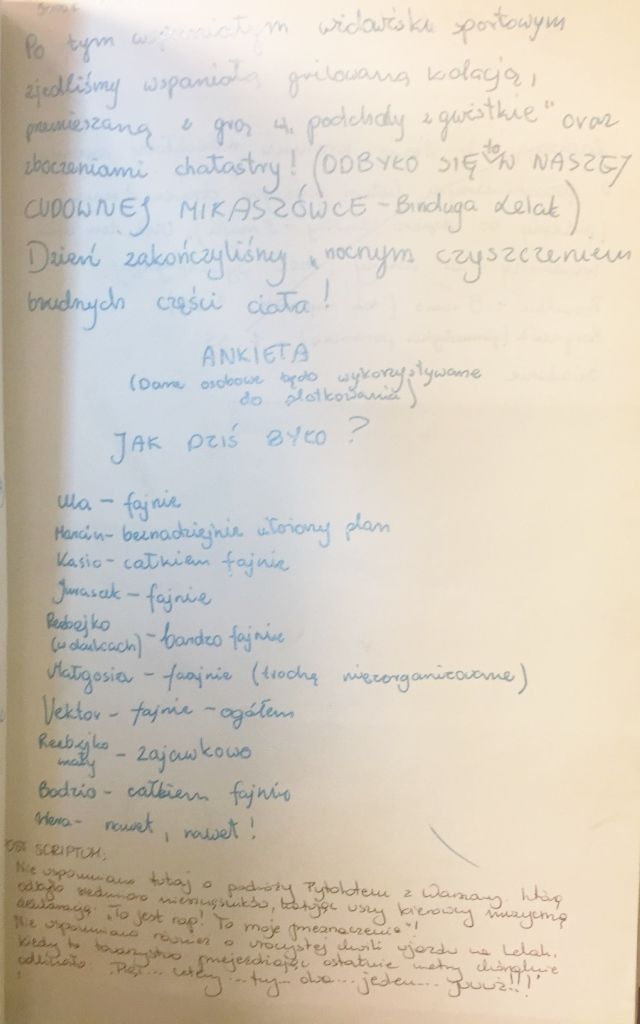 Po tym wspaniałym widowisku sportowym
zjedliśmy wspaniałą grilowaną kolację,
przemieszaną z grą w „podchody z gwistkie" oraz
zboczeniami chałastry! (ODBYŁO SIĘ to W NASZEJ
CUDOWNEJ MIKASZÓWCE - Binduga Lelak)
Dzień zakończyliśmy nocnym czyszczeniem
brudnych części ciała!
ANKIETA
(Dane osobowe będą wykorzystywane
do plotkowania)
JAK DZIŚ BYŁO?
Ula - fajnie
Marcin - beznadziejnie ułożony plan
Kasia - całkiem fajnie
Jurasek - fajnie
(w dołkach) - bardzo fajnie
Małgosia - faajnie (trochę niezorganizowane)
Vektor - fajnie - ogółem
mały - zajawkowo
Bodzio - całkiem fajnio
Wera - nawet, nawet!
POST SCRIPTUM:
Nie wspomniano tutaj o podróży z Warszawy, którą
odbyło siedmioro nieszczęśników, katując uszy kierowcy muzyczną
deklamacją. „To jest rap! To moje przeznaczenie"!
Nie wspomniano również o uroczystej chwili wjazdu na Lelak,
kiedy to towarzystwo przejeżdżając ostatnie metry chóralnie
odliczało. Pięć... cztery... trzy... dwa... jeden... yuuuż!!!